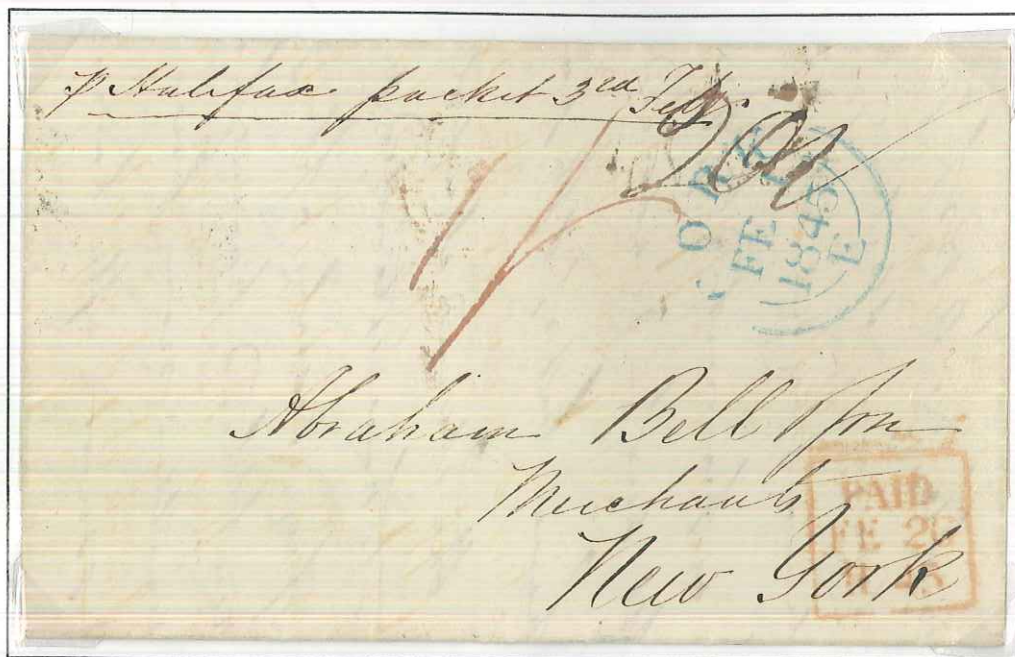 p Halifax packet 3rd Feby
1/
CORK
FE
1845
E
Abraham Bell & Son
Merchants
New York
PAID
FE 2